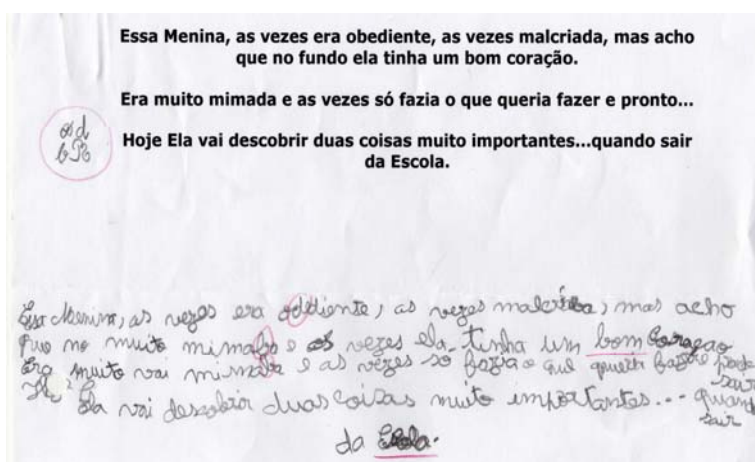 Essa Menina, as vezes era obediente, as vezes malcriada, mas acho
que no fundo ela tinha um bom coração.
Era muito mimada e as vezes só fazia o que queria fazer e pronto...
Hoje Ela vai descobrir duas coisas muito importantes...quando sair
da Escola.
Essa Menina, as vezes era oddiente, as vezes malcriba, mas acho
que no muito mimaba e as vezes ela tinha um bom coraçao
Era muito vai mimaba e as vezes so fazia o que
Ela vai descobrir duas coizas muito importantes... quand
sair
da